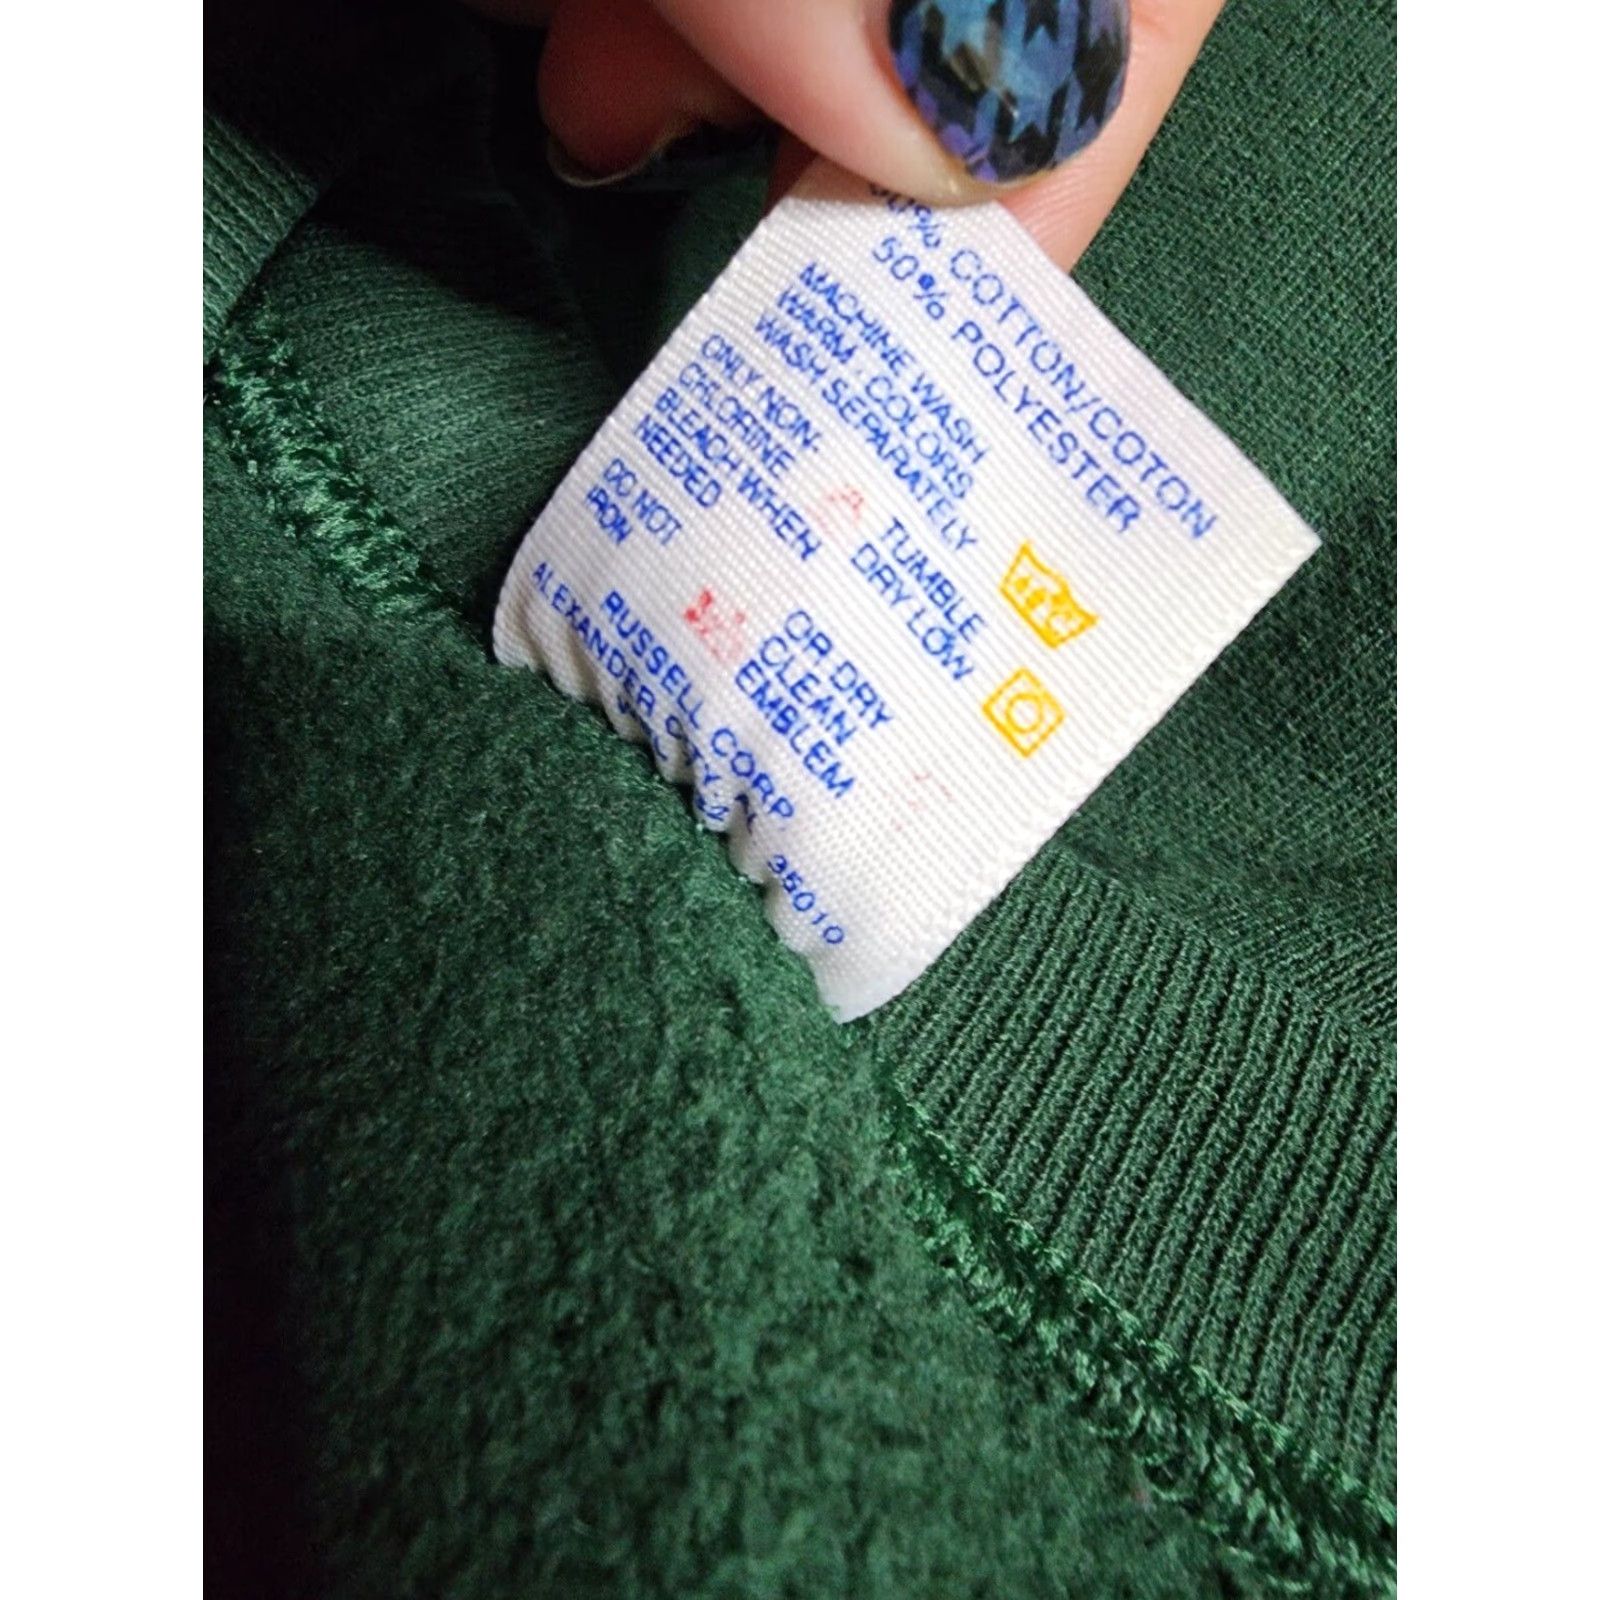 COTTON/COTON
50% POLYESTER
MACHINE WASH
WARM - COLORS
WASH SEPARATELY
ONLY NON-
CHLORINE
BLEACH WHEN
NEEDED
TUMBLE
DRY LOW
DO NOT
IRON
OR DRY
CLEAN
EMBLEM
RUSSELL CORP.
ALEXANDER CITY,
35010